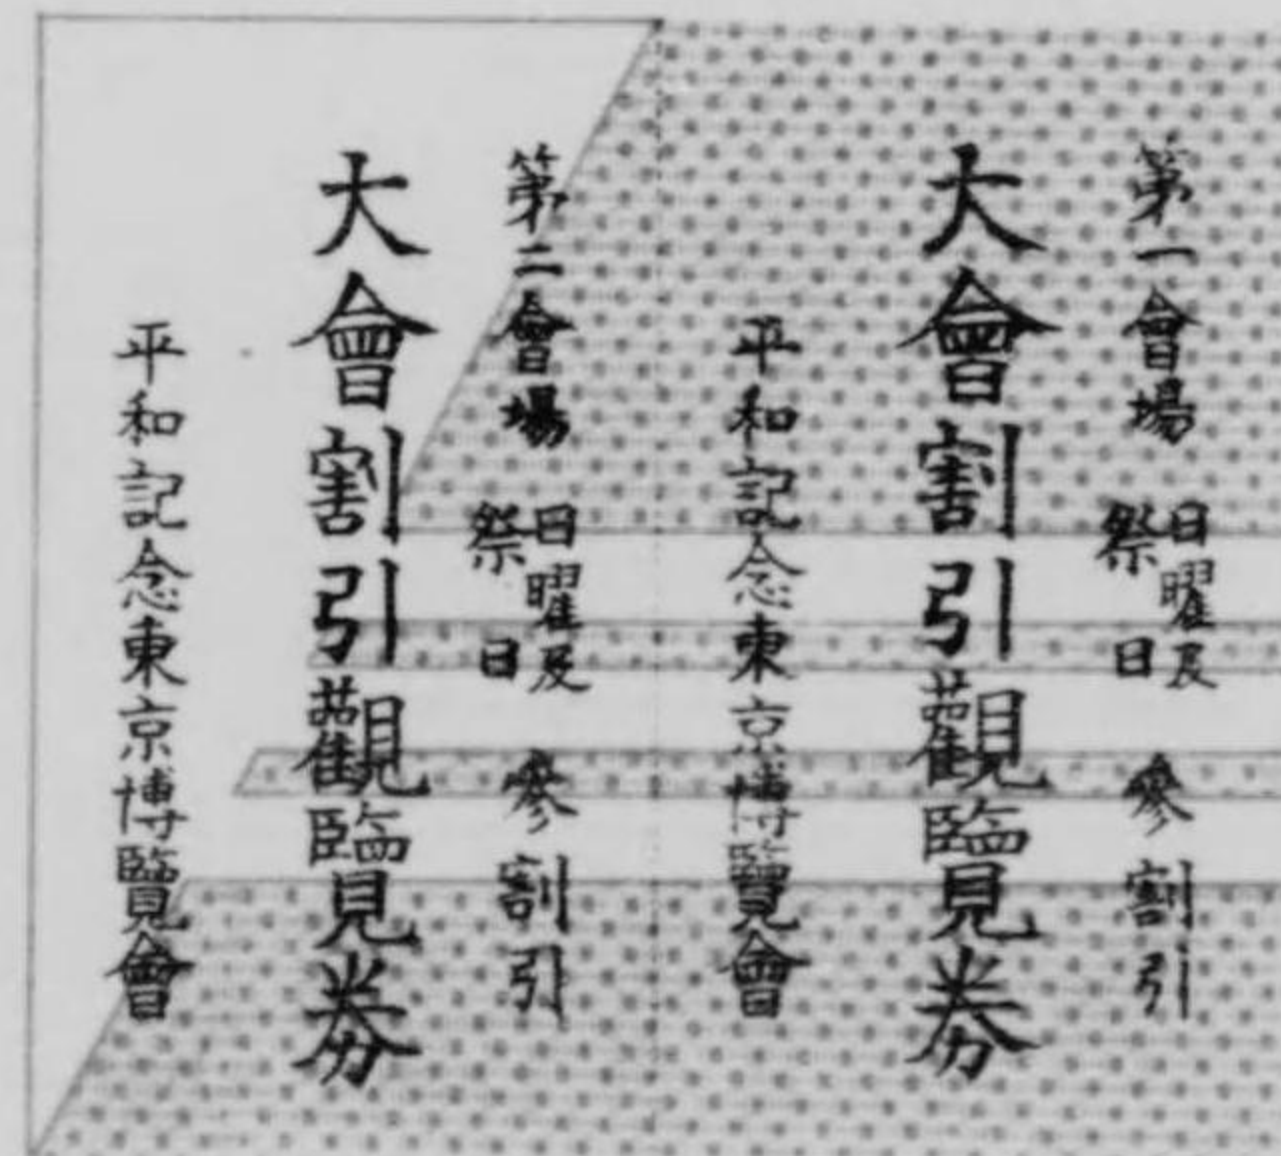 第一會場 日曜及祭日 參割引
大會割引觀覽券
平和記念東京博覽會
第二會場 日曜及祭日 參割引
大會割引觀覽券
平和記念東京博覽會